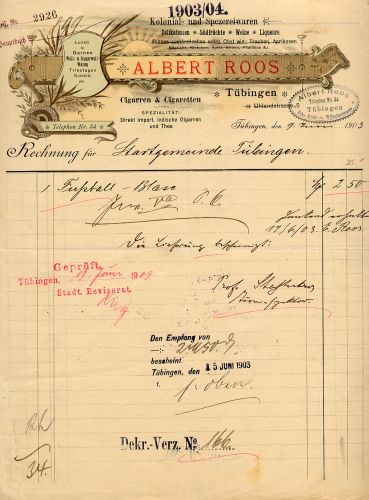 1903/04.
No. 2926
Kolonial- und Spezereiwaren
Delikatessen * Südfrüchte * Weine * Liqueure
LAGER
in
Garnen
Woll- & Baumwoll-
Waren
Trikotagen
Korsetts
etc.
ALBERT ROOS
Cigarren & Cigaretten
Tübingen
Uhlandstrasse
SPEZIALITÄT:
Direkt import. indische Cigarren
und Thee
Albert Roos
Telephon Nr. 84
Tübingen
Telephon Nr. 84
Tübingen, den 9. Juni 1903
Rechnung für Stadtgemeinde Tübingen
1 Fussball-Blase 2.50
dankend erhalten
17/6/03 A. Roos
Die Lieferung bescheinigt:
Geprüft,
Tübingen, Juni 1903
Stadt. Revisorat
Prof.
Turninspektor.
Den Empfang von
2 M 50 d.
bescheint
Tübingen, den 15 JUNI 1903
s. oben
Dekr.-Verz. No. 166.